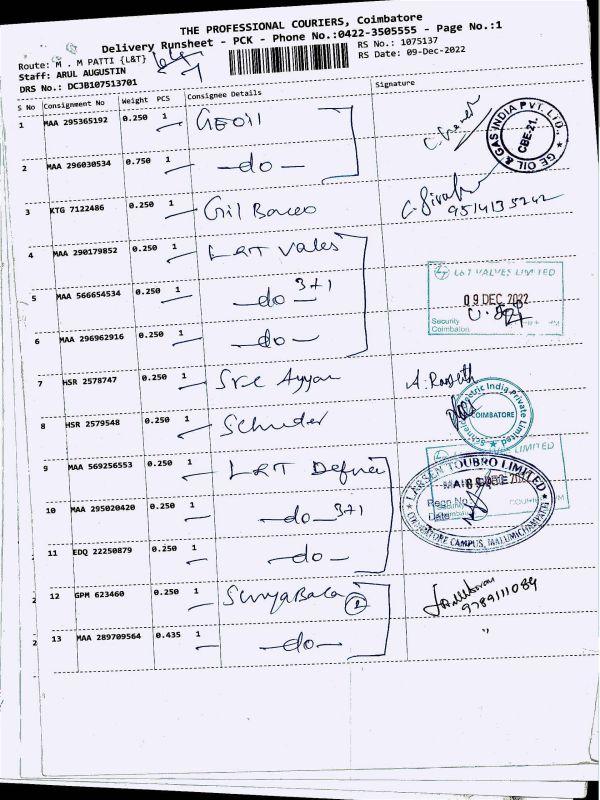 THE PROFESSIONAL COURIERS, Coimbatore
Delivery Runsheet - PCK - Phone No.:0422-3505555 - Page No.:1
Route: M . M PATTI {L&T}
RS No.: 1075137
Staff: ARUL AUGUSTIN
RS Date: 09-Dec-2022
DRS No.: DCJB107513701
S No Consignment No Weight PCS Consignee Details Signature
1 MAA 295365192 0.250 1 GEOil
GE OIL & GAS INDIA PVT. LTD. CBE-21.
2 MAA 296030534 0.750 1 -do-
3 KTG 7122486 0.250 1 9514135242
4 MAA 290179852 0.250 1 L&T Vales
L&T VALVES LIMITED
5 MAA 566654534 0.250 1 -do- 3+1
09 DEC 2022
Security
Coimbatore
6 MAA 296962916 0.250 1 -do-
7 HSR 2578747 0.250 1 Sree Ayyan
8 HSR 2579548 0.250 1
COIMBATORE
9 MAA 569256553 0.250 1 L&T
LARSEN TOUBRO LIMITED
10 MAA 295020420 0.250 1 -do- 3+1
COIMBATORE CAMPUS, MALUMICHAMPATTI
11 EDQ 22250879 0.250 1 -do-
12 GPM 623460 0.250 1 SuryaBala 2
9789111089
13 MAA 289709564 0.435 1 -do- "